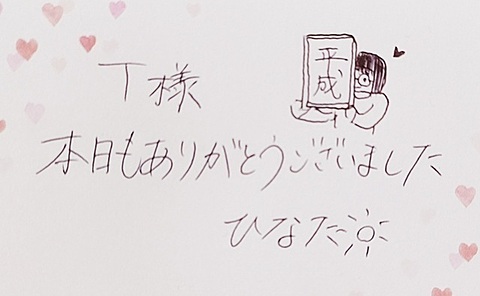 平成
T様
本日もありがとうございました
ひなた